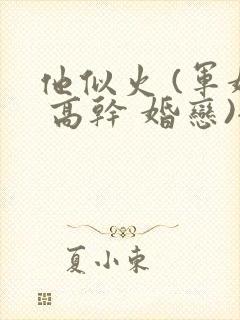 他似火(軍婚
高幹 婚戀)
夏小束